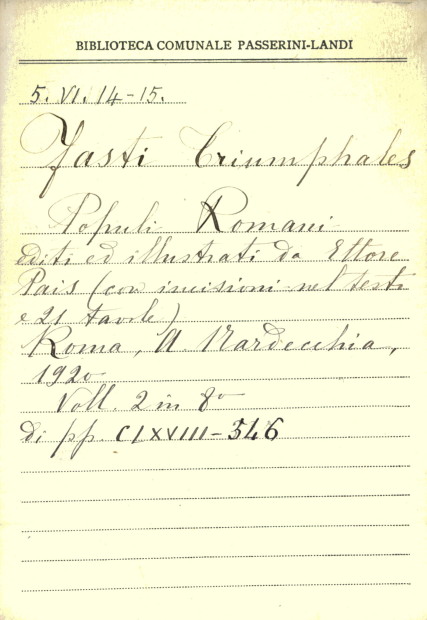 BIBLIOTECA COMUNALE PASSERINI-LANDI
5. VI. 14-15.
Fasti Triumphales
Populi Romani
editi ed illustrati da Ettore
Pais (con incisioni nel testo
e 21 tavole)
Roma, A. Nardecchia,
1920
Voll. 2 in 8º
di pp. CLXVIII-546